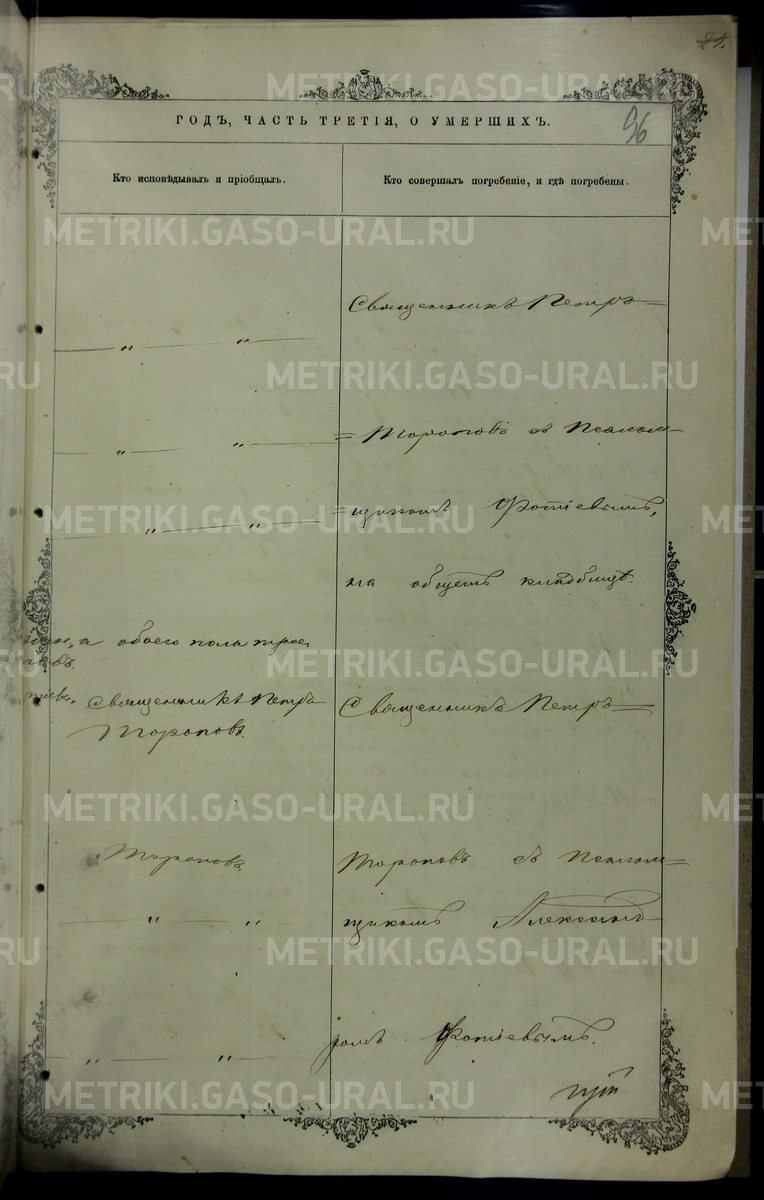 24.
96
ГОДЪ, ЧАСТЬ ТРЕТІЯ, О УМЕРШИХЪ.
Кто исповѣдывалъ и пріобщалъ.
Кто совершалъ погребеніе, и гдѣ погребены.
Священникъ Петръ
— „ — „ —
— „ — „ —
= Тороповъ съ Псалом-
— „ — „ —
=щикомъ Фотіевымъ,
на общемъ кладбищѣ.
а обоего пола трое,
Священникъ Петръ
Тороповъ.
Священникъ Петръ
Тороповъ
Тороповъ съ Псалом=
— „ — „
щикомъ Александ-
— „ — „ —
ромъ Фотіевымъ.
METRIKI.GASO-URAL.RU